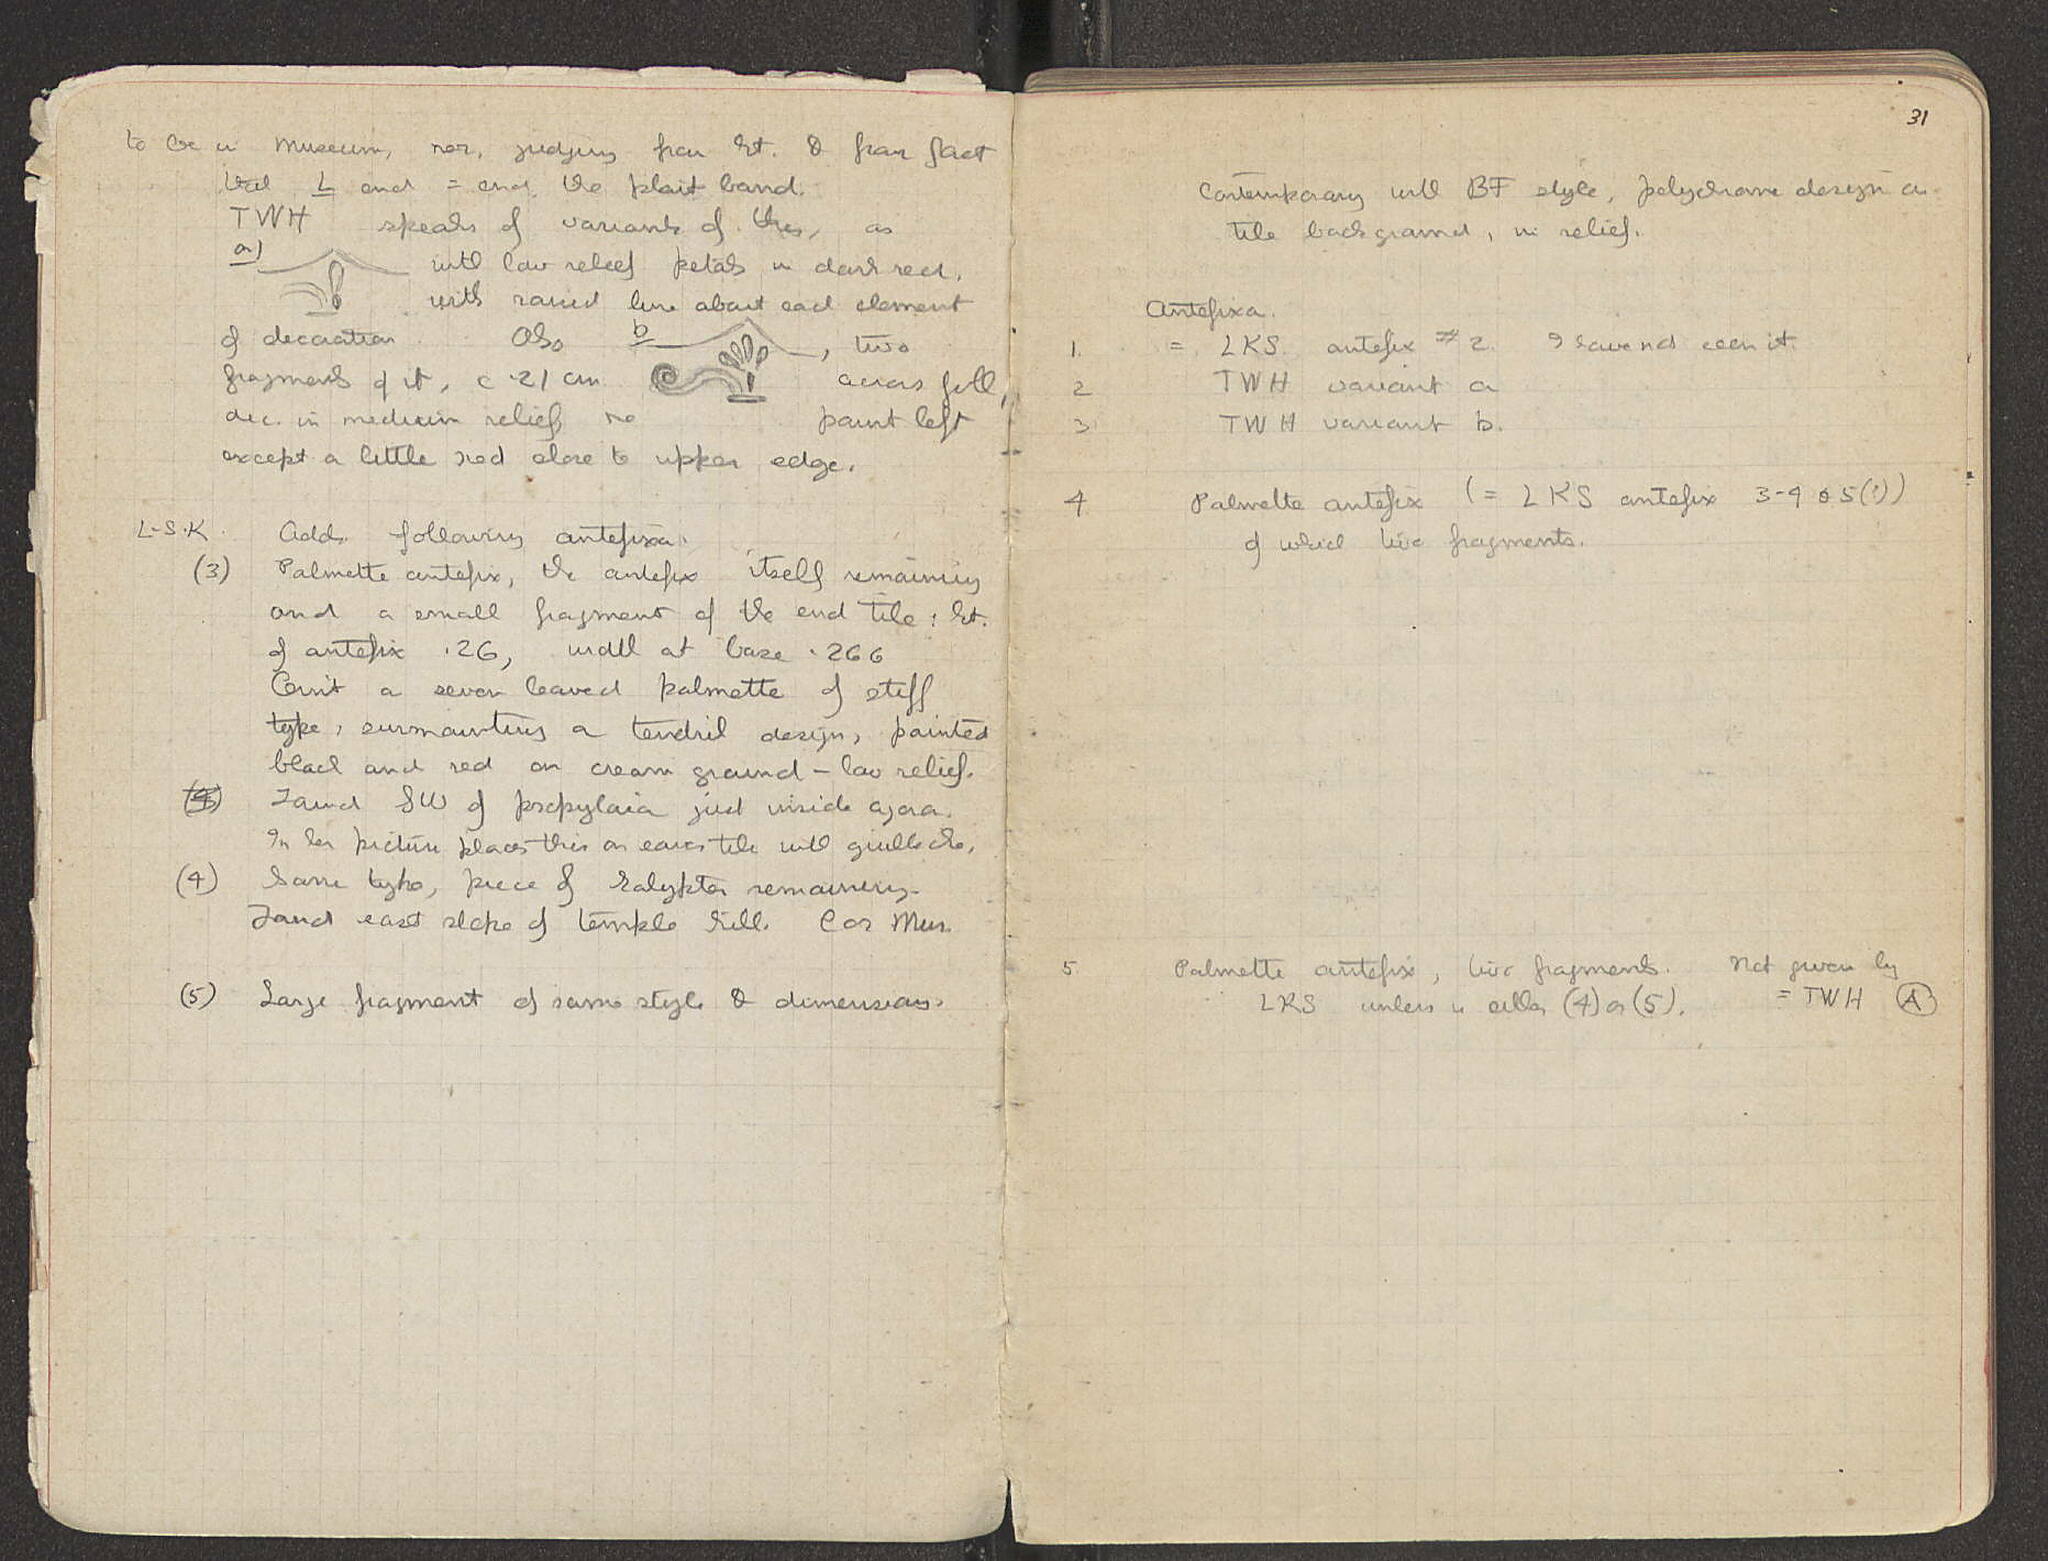 to be in Museum, nor, judging from ht. & from fact
that L end = end the plait band.
TWH speaks of variants of this, as
a) with low relief petals in dark red,
with raised line about each element
of decoration. Also b , two
fragments of it, c .21 cm across full,
dec. in medium relief no paint left
except a little red close to upper edge.
L-S.K. Adds following antefixa.
(3) Palmette antefix, the antefix itself remaining
and a small fragment of the end tile: ht.
of antefix .26, width at base .266
a seven leaved palmette of stiff
type, surmounting a tendril design, painted
black and red on cream ground - low relief.
(4) Found SW of propylaia just inside agora.
In her picture places this on eaves tile with guilloche.
(4) Same type, piece of kalypter remaining.
Found east slope of temple hill. Cor Mus.
(5) Large fragment of same style & dimensions.
31
Contemporary with BF style, polychrome design on
tile background, in relief.
Antefixa.
1. = LKS. antefix #2. I have not seen it.
2 TWH variant a
3 TWH variant b.
4 Palmette antefix (= LKS antefix 3-4 & 5(?))
of which two fragments.
5 Palmette antefix, two fragments. Not given by
LKS unless is either (4) or (5). = TWH (A)